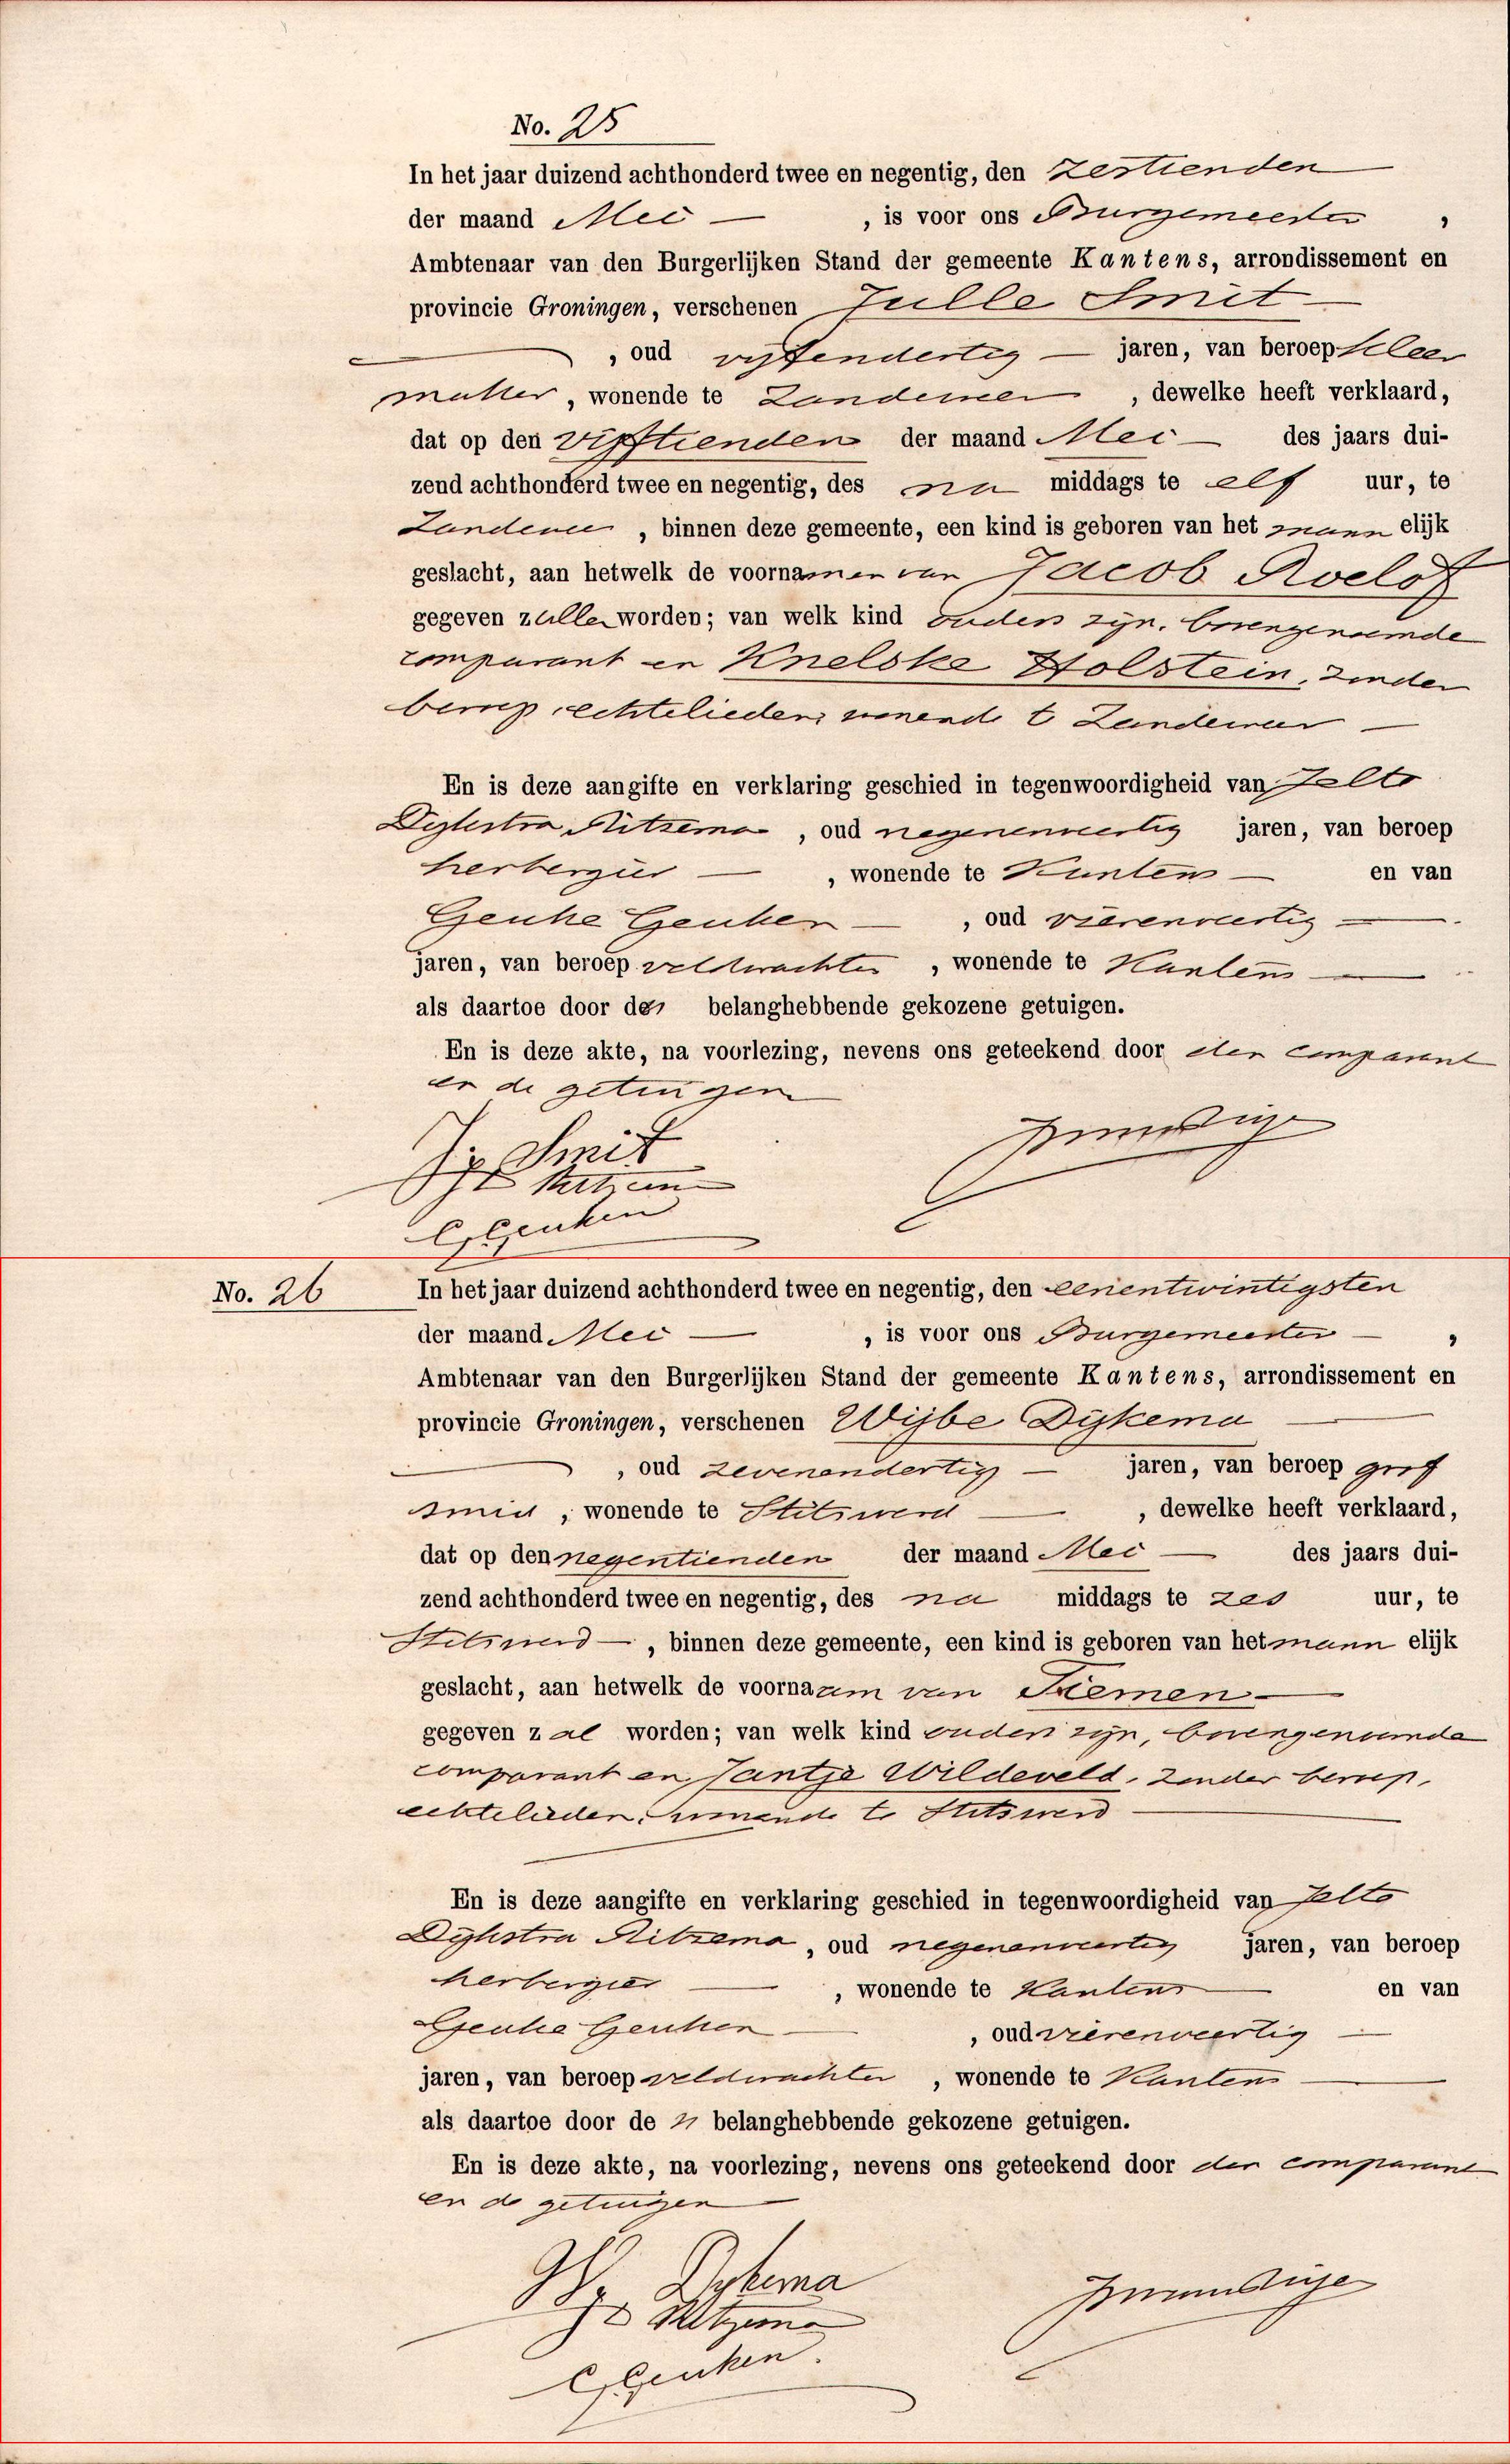 No. 25
In het jaar duizend achthonderd twee en negentig, den zestienden
der maand Mei , is voor ons Burgemeester ,
Ambtenaar van den Burgerlijken Stand der gemeente Kantens, arrondissement en
provincie Groningen, verschenen Julle Smit
, oud vijfendertig jaren, van beroep kleer
maker, wonende te Zandeweer , dewelke heeft verklaard,
dat op den vijftienden der maand Mei des jaars dui-
zend achthonderd twee en negentig, des na middags te elf uur, te
Zandeweer , binnen deze gemeente, een kind is geboren van het mann elijk
geslacht, aan hetwelk de voornamen van Jacob Roelof
gegeven zullen worden; van welk kind ouders zijn, bovengenoemde
comparant en Knelske Holstein, zonder
beroep, echtelieden, wonende te Zandeweer
En is deze aangifte en verklaring geschied in tegenwoordigheid van Jelto
Dijkstra Ritzema , oud negenenveertig jaren, van beroep
herbergier , wonende te Kantens en van
Geuke Geuken , oud vierenveertig
jaren, van beroep veldwachter , wonende te Kantens
als daartoe door den belanghebbende gekozene getuigen.
En is deze akte, na voorlezing, nevens ons geteekend door den comparant
en de getuigen
Smit
J D Ritzema
G Geuken
No. 26
In het jaar duizend achthonderd twee en negentig, den eenentwintigsten
der maand Mei , is voor ons Burgemeester ,
Ambtenaar van den Burgerlijken Stand der gemeente Kantens, arrondissement en
provincie Groningen, verschenen Wijbe Dijkema
, oud zevenendertig jaren, van beroep grof
smid , wonende te Stitswerd , dewelke heeft verklaard,
dat op den negentienden der maand Mei des jaars dui-
zend achthonderd twee en negentig, des na middags te zes uur, te
Stitswerd , binnen deze gemeente, een kind is geboren van het mann elijk
geslacht, aan hetwelk de voornaam van Siemen
gegeven zal worden; van welk kind ouders zijn, bovengenoemde
comparant en Jantje Wildeveld, zonder beroep,
echtelieden, wonende te Stitswerd
En is deze aangifte en verklaring geschied in tegenwoordigheid van Jelto
Dijkstra Ritzema , oud negenenveertig jaren, van beroep
herbergier , wonende te Kantens en van
Geuke Geuken , oud vierenveertig
jaren, van beroep veldwachter , wonende te Kantens
als daartoe door den belanghebbende gekozene getuigen.
En is deze akte, na voorlezing, nevens ons geteekend door den comparant
en de getuigen
W. Dykema
J D Ritzema
G Geuken.